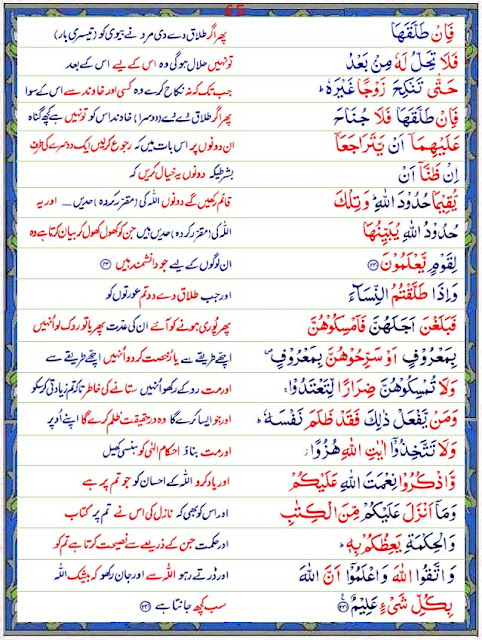 65
فَاِنْ طَلَّقَهَا پھر اگر طلاق دے دی مرد نے بیوی کو (تیسری بار)
فَلَا تَحِلُّ لَهٗ مِنْۢ بَعْدُ تو نہیں حلال ہوگی وہ اس کے لیے اس کے بعد
حَتّٰى تَنْكِحَ زَوْجًا غَيْرَهٗ ؕ جب تک کہ نہ نکاح کرے وہ کسی اور خاوند سے اس کے سوا
فَاِنْ طَلَّقَهَا فَلَا جُنَاحَ پھر اگر طلاق دے دے (دوسرا) خاوند اس کو تو نہیں ہے کچھ گناہ
عَلَيْهِمَاۤ اَنْ يَّتَرَاجَعَاۤ ان دونوں پر اس بات میں کہ رجوع کر لیں ایک دوسرے کی طرف
اِنْ ظَنَّاۤ اَنْ بشرطیکہ دونوں یہ خیال کریں کہ
يُّقِيْمَا حُدُوْدَ اللّٰهِ ؕ وَتِلْكَ قائم رکھیں گے دونوں اللہ کی (مقرر کردہ) حدیں ... اور یہ
حُدُوْدُ اللّٰهِ يُبَيِّنُهَا اللہ کی (مقرر کردہ) حدیں ہیں جن کو کھول کھول کر بیان کرتا ہے وہ
لِقَوْمٍ يَّعْلَمُوْنَ ان لوگوں کے لیے جو دانشمند ہیں
وَاِذَا طَلَّقْتُمُ النِّسَآءَ اور جب طلاق دے دو تم عورتوں کو
فَبَلَغْنَ اَجَلَهُنَّ فَاَمْسِكُوْهُنَّ پھر پوری ہونے کو آئے ان کی عدت پھر یا تو روک لو انہیں
بِمَعْرُوْفٍ اَوْ سَرِّحُوْهُنَّ بِمَعْرُوْفٍ اچھے طریقے سے یا رخصت کر دو انہیں اچھے طریقے سے
وَلَا تُمْسِكُوْهُنَّ ضِرَارًا لِّتَعْتَدُوْا ۚ اور مت روکے رکھو انہیں ستانے کی خاطر تاکہ تم زیادتی کر سکو
وَمَنْ يَّفْعَلْ ذٰلِكَ فَقَدْ ظَلَمَ نَفْسَهٗ ؕ اور جو ایسا کرے گا وہ درحقیقت ظلم کرے گا اپنے اُوپر
وَلَا تَتَّخِذُوْۤا اٰيٰتِ اللّٰهِ هُزُوًا ؗ اور مت بناؤ احکام الٰہی کو ہنسی کھیل
وَّاذْكُرُوْا نِعْمَتَ اللّٰهِ عَلَيْكُمْ اور یاد کرو اللہ کے احسان کو جو تم پر ہے
وَمَاۤ اَنْزَلَ عَلَيْكُمْ مِّنَ الْكِتٰبِ اور اس کو بھی کہ نازل کی اس نے تم پر کتاب
وَالْحِكْمَةِ يَعِظُكُمْ بِهٖ ؕ اور حکمت جن کے ذریعے سے نصیحت کرتا ہے تم کو
وَاتَّقُوا اللّٰهَ وَاعْلَمُوْۤا اَنَّ اللّٰهَ اور ڈرتے رہو اللہ سے اور جان رکھو کہ بیشک اللہ
بِكُلِّ شَىْءٍ عَلِيْمٌ سب کچھ جانتا ہے